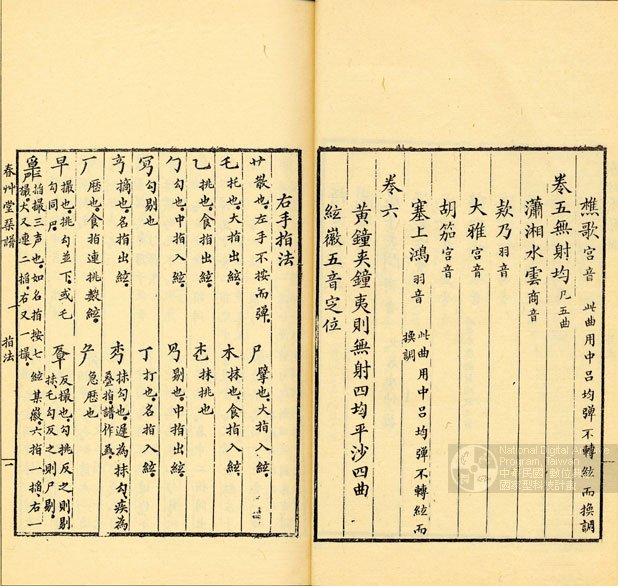 樵歌宮音 此曲用中呂均彈不轉絃而換調
卷五無射均 凡五曲
瀟湘水雲商音
欸乃羽音
大雅宮音
胡笳宮音
塞上鴻羽音 此曲用中呂均彈不轉絃而換調
卷六
黃鐘夾鐘夷則無射四均平沙四曲
絃徽五音定位
右手指法
艹散也。左手不按而彈。 尸擘也。大指入絃。
乇托也。大指出絃。 木抹也。食指入絃。
乙挑也。食指出絃。 抹挑也
勹勾也。中指入絃。 剔也。中指出絃
勾剔也 丁打也。名指入絃。
摘也。名指出絃。 抹勾也。遲為抹勾。疾為疊指。譜作
厂歷也。食指連挑數絃。 急歷也
早撮也。挑勾並下。或乇勾同尸。 反撮也。勾挑反之則剔抹。乇勾反之則尸剔。
掐撮三声也。如名指按七絃某徽。六指一掐。右一撮。又連二掐。右又一撮。
春艸堂琴譜
指法
一
National Digital Archives Program, Taiwan
中華民國 數位典藏國家型科技計畫